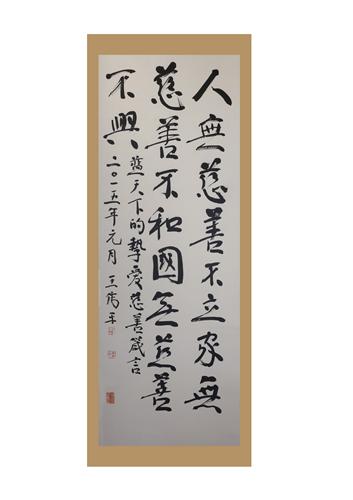 人無慈善不立家無
慈善不和國無慈善
不興
藍天下的摯愛慈善箴言
二〇一五年元月 王